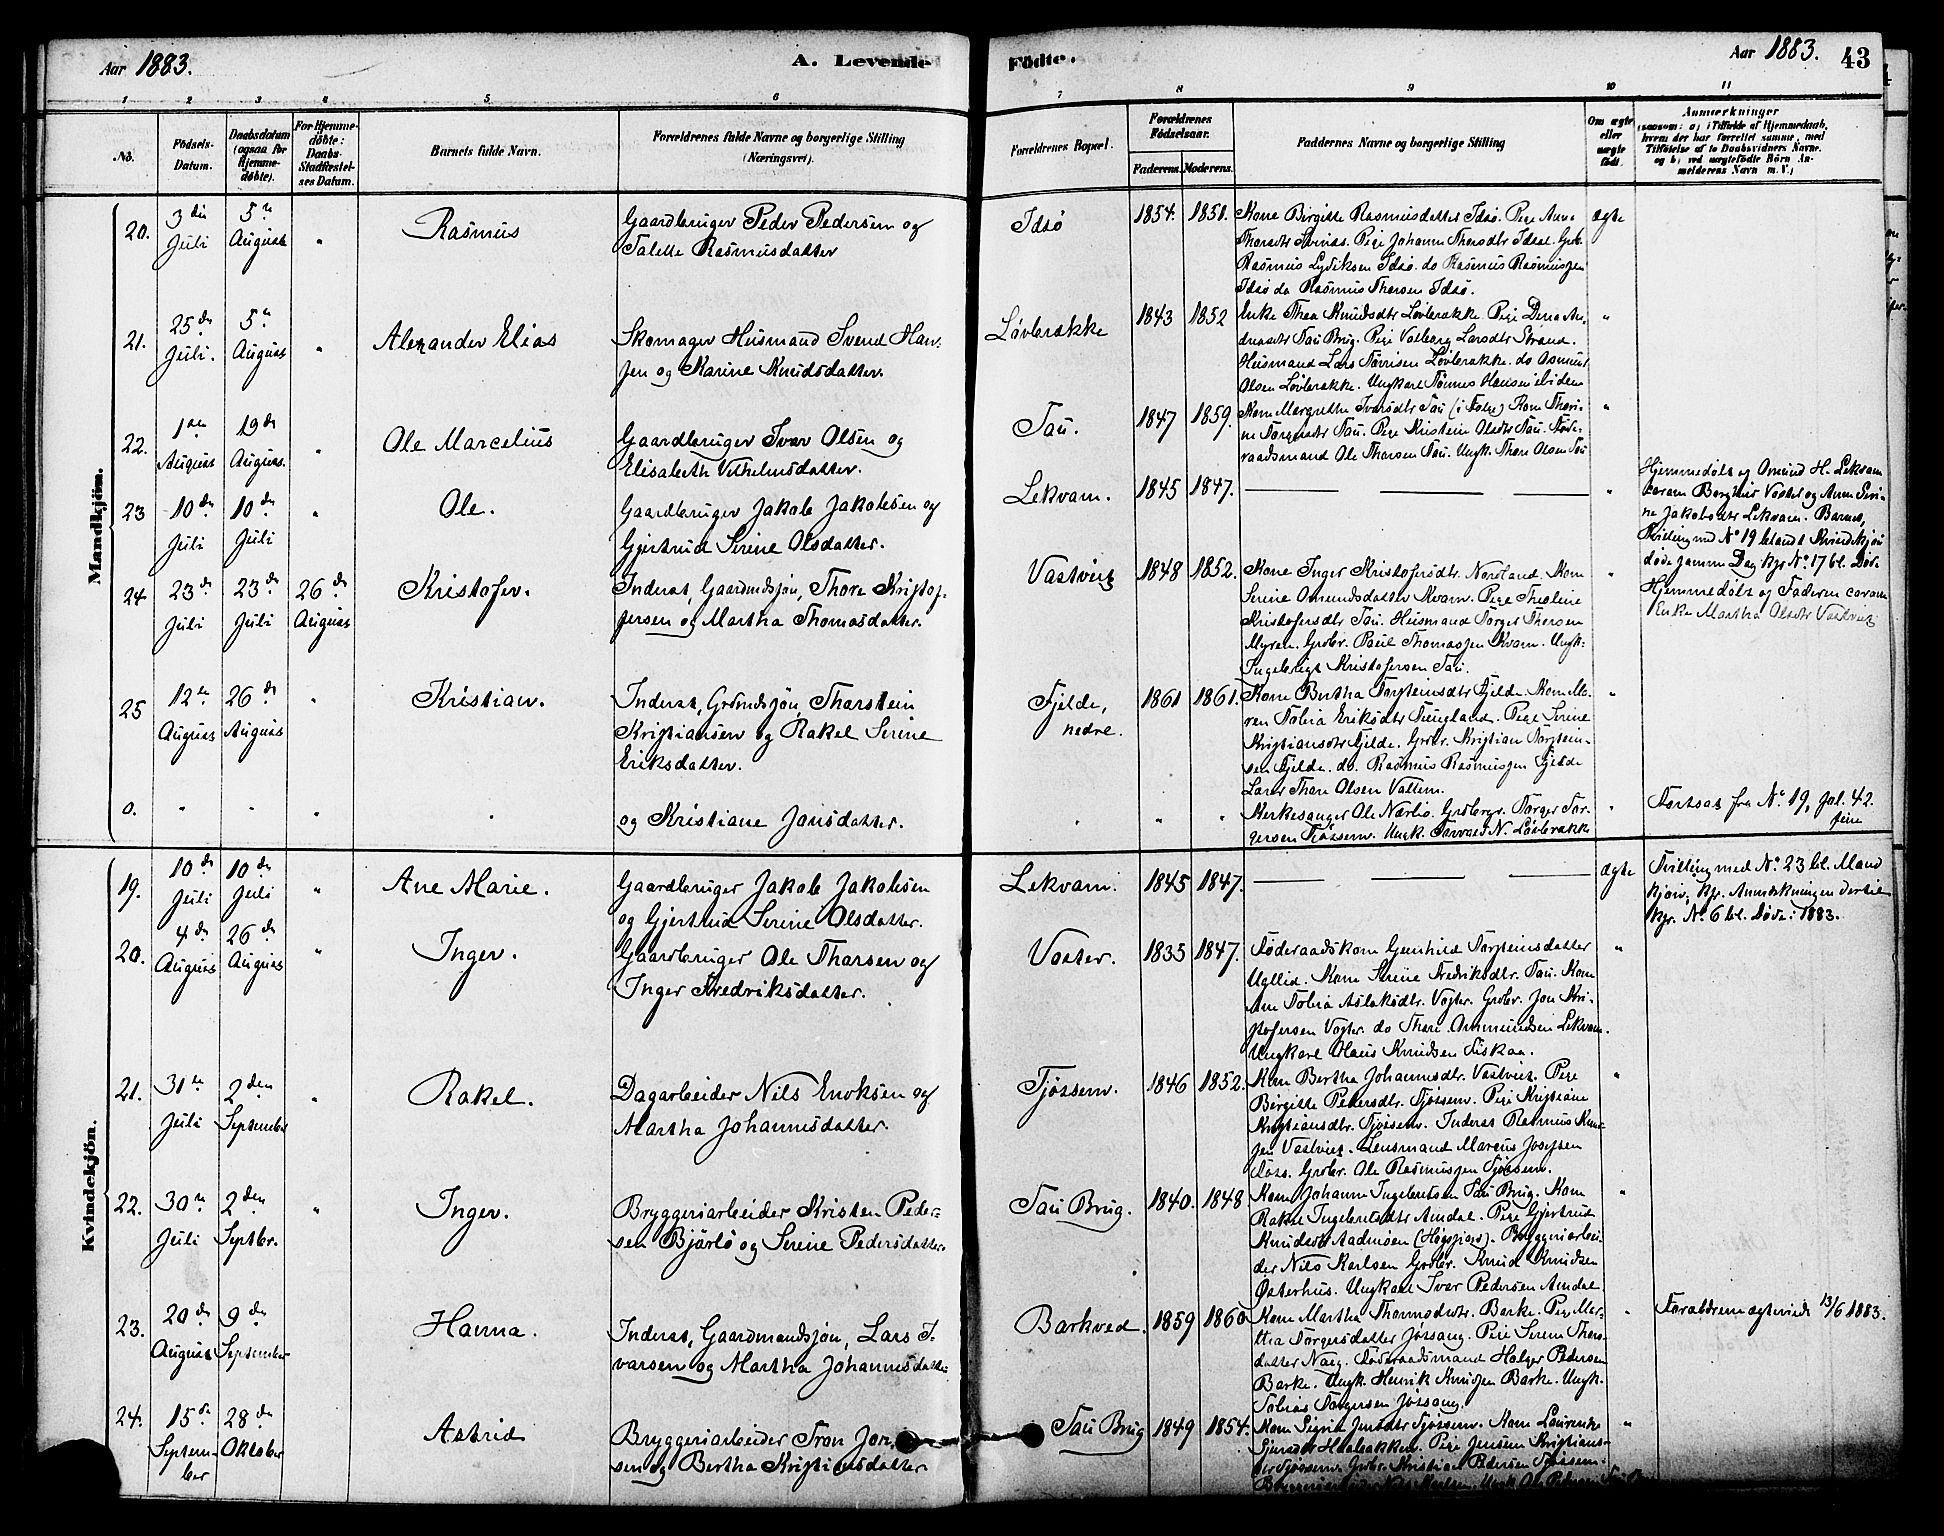 Aar 1883.
A. Levende Fødte.
Aar 1883. 43
1 2 3 4 5 6 7 8 9 10 11
No.
Födsels-
Datum.
Daabsdatum
(ogsaa for
Hjemme-
döbte).
For Hjemme-
döbte:
Daabs-
Stadfæstel-
ses Datum.
Barnets fulde Navn.
Forældrenes fulde Navne og borgerlige Stilling
(Næringsvei).
Forældrenes Bopæl.
Forældrenes
Födselsaar.
Faderens. Moderens.
Faddernes Navne og borgerlige Stilling
Om ægte
eller
uægte
födt.
Anmærkninger
(saasom: a) i Tilfælde af Hjemmedaab,
hvem der har forrettet samme, med
Tilföielse af to Daabsvidners Navne.
og b) ved uægtefödte Börn An-
melderens Navn m. V.)
Mandkjön.
20.
3 die
Juli
5te
August
"
Rasmus
Gaardbruger Peder Pedersen og
Talette Rasmusdatter
Idsø
1854. 1851.
Kone Birgitte Rasmusdatter Idsø. Pige Anna
Pige Johanne
Rasmus Lydiksen Idsø. do Rasmus Rasmussen
Idsø do Rasmus Thorsen Idsø.
Ægte
21.
25 de
Juli.
5te
August
"
Alexander Elias
Skomager Husmand Svend Han-
sen og Karine Knudsdatter.
Løvbrække
1843 1852
Enke Thea Knudsdtr Løvbrække Pige
Tau Brug. Pige Valborg Larsdtr Strand.
Husmand Lars Løvbrække. do Asmund
Olsen Løvbrække. Ungkarl Tønnes Hansen ibidem
"
22.
1ste
August
19de
August.
"
Ole Marcelius
Gaardbruger Ivar Olsen og
Elisabeth Vilhelmsdatter.
Tau.
1847 1859.
Kone Margrethe Ivarsdtr Tau
Tau. Pige Kristine Olsdtr Tau. Føde-
raadsmand Ole Thorsen Tau. Ungk. Thore Olsen Tau
"
23
10 de
Juli
10 de
Juli
"
Ole.
Gaardbruger Jakob Jakobsen og
Gjertrud Serine Olsdatter.
Lekvam.
1845 1847.
"
Hjemmedøbt af Omund H. Lekvam
coram Vaster og Anne Seri-
ne Jakobsdtr Lekvam. Barnet,
Tvilling med No 19 blandt Kvindekjøn
døde samme Dag kfr No 17 bl. Døde
24
23 de
Juli
23 de
Juli
26 de
August
Kristofer.
Inderst, Gaardmdssøn, Thore Kristof-
fersen og Martha Thomasdatter.
Vastveit
1848 1852.
Kone Inger Kristofersdtr. Nordland. Kone
Serine Omundsdatter Kvam. Pige
Kristofersdtr Tau. Husmand Torger Thorsen
Myren. Grdbr. Paul Thomassen Kvam. Ungk.
Ingebrigt Kristofersen Tau.
"
Hjemmedøbt af Faderen coram
Enke Martha Olsdtr Vastveit
25
12te
August
26 de
August
"
Kristian.
Inderst, Grdmdssøn, Thorstein
Kristiansen og Rakel Serine
Eriksdatter.
Fjelde,
nedre.
1861 1861.
Kone Bertha Torsteinsdtr Fjelde. Kone Ma-
ren Tobia Eriksdtr Tungland. Pige Serine
Kristiansdtr Fjelde. Grdbr. Kristian Torstein-
sen Fjelde. do. Rasmus Rasmussen Fjelde
Lars Thore Olsen
"
0.
" " " "
og Kristiane Jonsdatter.
" " "
Kirkesanger Ole Nærbø. Grdbrgr. Torger Tor-
gersen Tjøssem. Ungk. N. Løvbrække
"
Fortsat fra No 19, fol. 42.
Kvindekjön.
19.
10 de
Juli
10 de
Juli
"
Ane Marie.
Gaardbruger Jakob Jakobsen
og Gjertrud Serine Olsdatter.
Lekvam.
1845 1847.
Ægte
Tvilling med No 23 bl. Mand
kjøn, kfr. Anmærkningen dertil
kfr. No 6 bl. Døde: 1883.
20.
4 de
August
26 de
August
"
Inger.
Gaardbruger Ole Thorsen og
Inger Fredriksdatter.
Vaster.
1835 1847.
Føderaadskone Gunhild Torsteinsdatter
Kone Serine Fredriksdtr. Tau. Kone
Ane Tobia Aslaksdtr. Voster. Grdbr. Jon Kri-
stofersen Voster. do Thore Ommundsen Lekvam.
Ungkarl Olaus Knudsen Fiskaa.
"
21.
31te
Juli
2 den
September
"
Rakel.
Dagarbeider Nils Enoksen og
Martha Johannesdatter.
Tjøssem.
1846 1852.
Kone Bertha Johannesdtr. Vastveit. Pige
Birgitte Pedersdtr. Tjøssem. Pige Kristiane
Kristiansdtr. Tjøssem. Inderst Rasmus Knud-
sen Vastveit. Lensmand Marcus Josefsen
Grdbr. Ole Rasmussen Tjøssem.
"
22.
30te
Juli
2 den
Septbr.
"
Inger.
Bryggeriarbeider Kristen Peder-
sen Bjørlo og Serine Pedersdatter.
Tau Brug.
1840. 1848
Kone Johanne Ingebretsen Tau Brug. Kone
Rakel Ingebretsdtr Amdal. Pige Gjertrud
Knudsdtr Aadnøen (Høgsfjord). Bryggeriarbei-
der Nils Karlsen Grdbr. Knud Knudsen
Østerhus. Ungkarl Ivar Pedersen Amdal.
"
23.
20 de
August
9 de
September
Hanna.
Inderst, Gaardmandssøn, Lars I-
varsen og Martha Johannesdatter
Barkved.
1859 1860
Kone Martha Thomasdtr. Barke. Pige Mar-
tha Torgersdatter Jøssang. Pige Serine Thors-
datter Nag. Føderaadsmand Holger Pedersen
Barke. Ungk. Henrik Knudsen Barke. Ungk.
Tobias Torgersen Jøssang.
"
Forældrene ægteviede 13/6 1883.
24.
15 de
Septem-
ber
28 de
Oktober
Astrid
Bryggeriarbeider Tron Jon-
sen og Bertha Kristiansdatter
Tau Brug
1849 1854.
Kone Sigrid Jonsdtr Tjøssem. Kone Laurenke
Pige Jensine Kristians-
dtr Tjøssem. Grdbr. Kristian Pedersen Tjøssem.
"